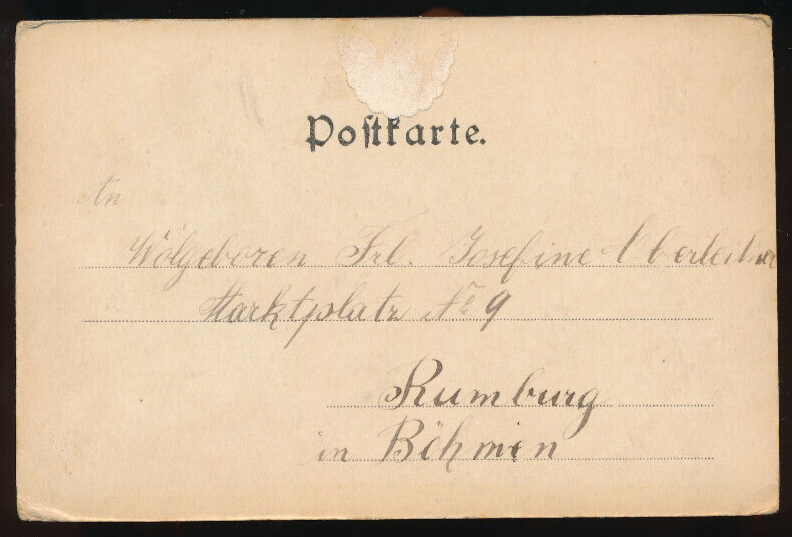 Postkarte.
An
Wolgeboren Frl. Josefine Oberleitner
Marktplatz No 9
Rumburg
in Böhmen